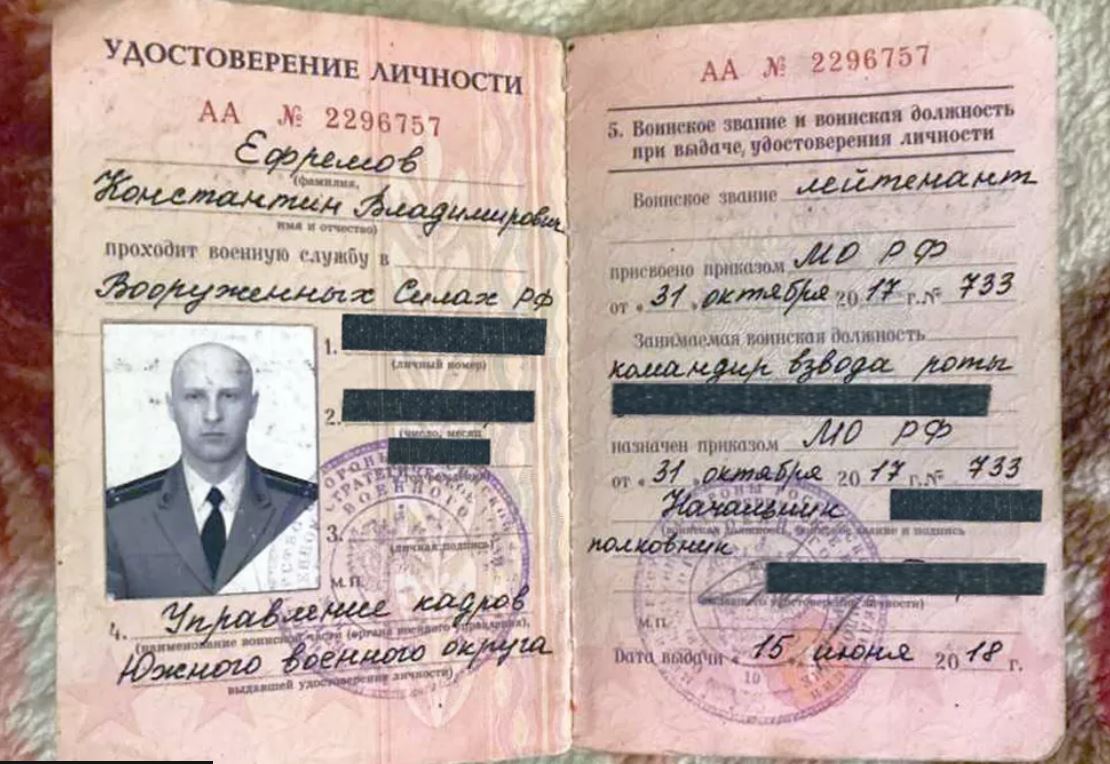 УДОСТОВЕРЕНИЕ ЛИЧНОСТИ
АА № 2296757
Ефремов
(фамилия,
Константин Владимирович
имя и отчество)
проходит военную службу в
Вооруженных Силах РФ
1.
(личный номер)
2.
(число, месяц
3.
(личная подпись)
М. П.
4. Управление кадров
(наименование воинской части (органа военного управления),
Южного военного округа
выдавшей удостоверение личности)
АА № 2296757
5. Воинское звание и воинская должность
при выдаче удостоверения личности
Воинское звание лейтенант
присвоено приказом МО РФ
от « 31 » октября 2017 г. № 733
Занимаемая воинская должность
командир взвода роты
назначен приказом МО РФ
от « 31 » октября 2017 г. № 733
Начальник
(воинская должность, воинское звание и подпись
полковник
личности)
М. П.
Дата выдачи « 15 » июня 2018 г.
10